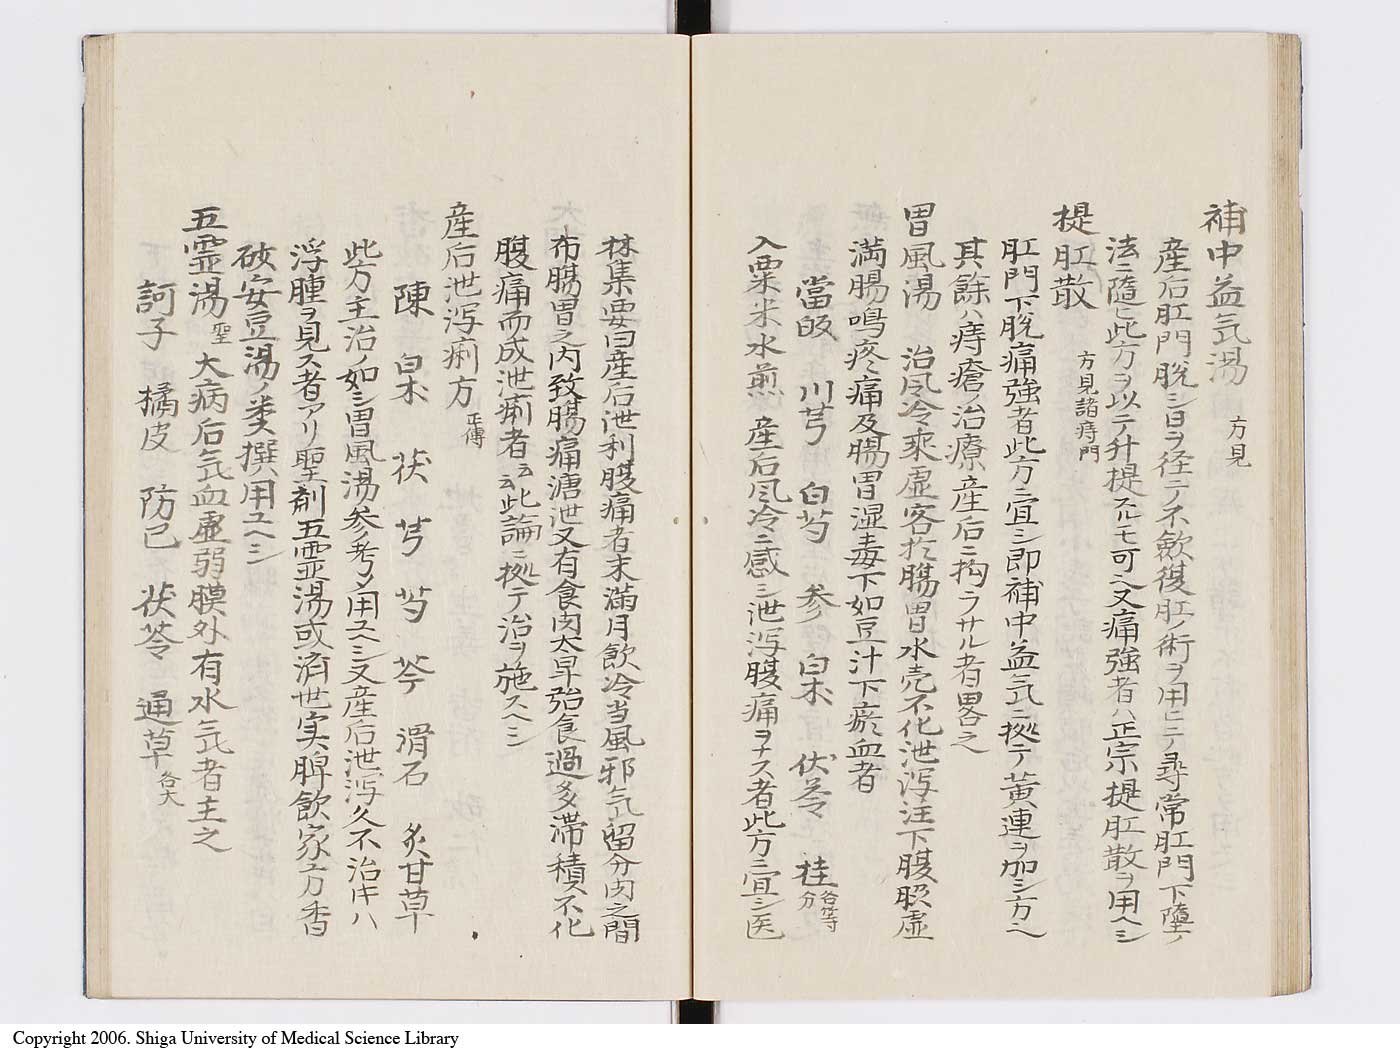 補中益気湯 方見
産后肛門脱シ日ヲ径テ不歛復肛ノ術ヲ用ヒテ尋常肛門下墮ノ
法ニ隨ヒ此方ヲ以テ升提スルモ可ヘ又痛強者ハ正宗提肛散ヲ用ヘシ
提肛散 方見諸痔門
肛門下脱痛強者此方ニ宜シ即補中益気ニ拠テ黄連ヲ加シ方ヘ
其餘ハ痔瘡ノ治療産后ニ拘ラサル者畧之
胃風湯 治风冷乘虚客於腸胃水壳不化泄泻注下腹脹虚
満腸鳴疼痛及腸胃湿毒下如豆汁下瘀血者
當皈 川芎 白芍 参 白朮 伏苓 桂 各等分
入粟米水煎 産后风冷ニ感シ泄泻腹痛ヲナス者此方ニ宜シ医
林集要曰産后泄利腹痛者末満月飲冷当風邪気留分肉之間
布腸胃之内致腸痛溏泄又有食肉太早強食過多滞積不化
腹痛而成泄痢者云云此論ニ拠テ治ヲ施スヘシ
産后泄泻痢方 正傳
陳 白朮 茯 芎 芍 芩 滑石 炙甘草
此方主治ノ如シ胃風湯参ノ考メ用ユヘシ又産后泄泻久不治キハ
浮腫ヲ見ス者アリ聖剤五霊湯或済世実脾飲家方香
砂安豆湯ノ类撰用ユヘシ
五霊湯 聖 大病后気血虚弱膜外有水気者主之
訶子 橘皮 防己 茯苓 通草 各大
Copyright 2006. Shiga University of Medical Science Library